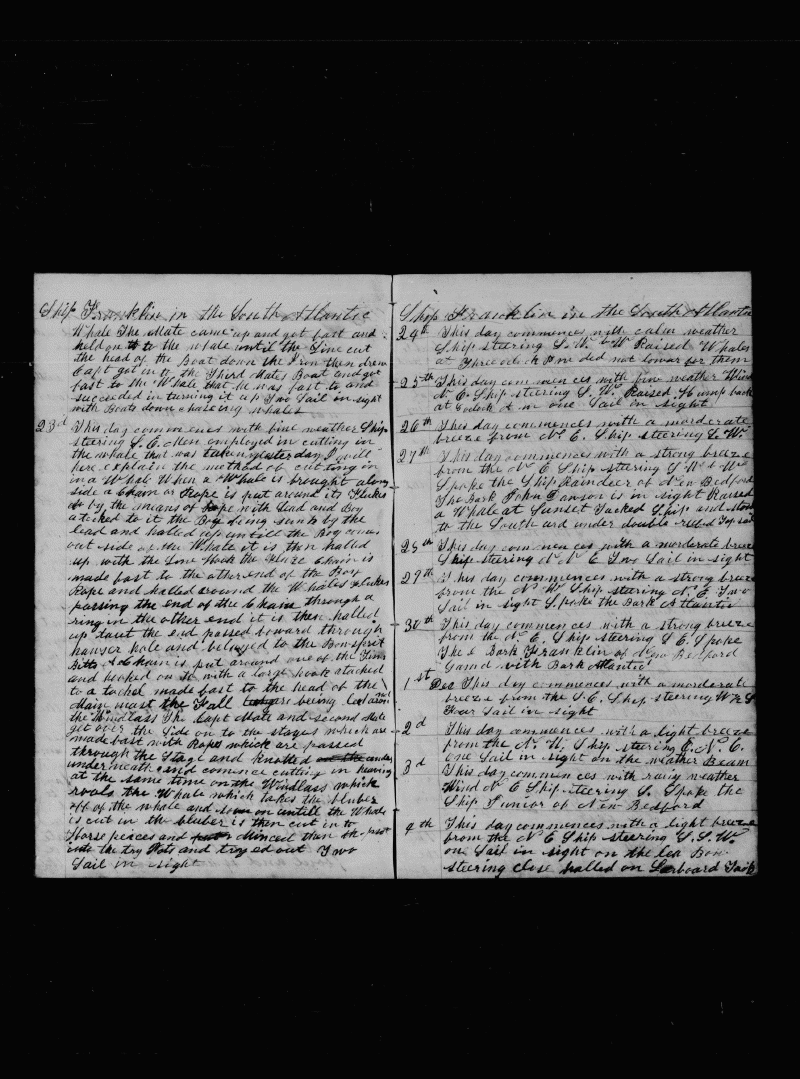 Ship Franklin in the South Atlantic
Whale The Mate came up and got fast and
held on to the whale until the Line cut
the head of the Boat down the Iron then drew
Capt got in to the Third Mates Boat and got
fast to the Whale that he was fast to and
succeeded in turning it up Two Sail in sight
with Boats down chaseing whales
23d This day commences with fine weather Ship
steering S. E. Men employed in cutting in
the whale that was taken yesterday I will
here explain the method of cutting in
in a Whale When a Whale is brought along
side a Chain or Rope is put around its Flukes
by the means of Rope with Lead and Boy
atacked to it the Boy being sunk by the
lead and halled up untill the Boy comes
out side of the Whale it is then halled
up with the Line Hook the Fluke Chain is
made fast to the other end of the Boy
Rope and halled around the Whales flukes
passing the end of the Chain through a
ring in the other end it is then halled
up taut the end passed foward through
hauser hole and belayed to the Bowsprit
Bitts A Chain is put around one of the Fins
and hooked on to with a large hook atacked
to a tackel made fast to the head of the
Main mast the Fall being led around
the Windlass The Capt Mate and second Mate
get over the side on to the stages which are
made fast with Ropes which are passed
through the Stage and knotted
underneath and comence cutting in heaving
at the same time on the Windlass which
rools the Whale which takes the bluber
off of the whale and so on untill the Whale
is cut in the bluber is then cut in to
Horse peices and Minced then put
into the try Pots and tryed out Two
Sail in sight
Ship Franklin in the South Atlantic
24th This day commences with calm weather
Ship steering S. W. Raised Whales
at Three o clock P m did not lower for them
25th This day commences with fine weather Wind
N. E. Ship steering S. W. Raised Hump back
at 6 oclock A m one Sail in sight
26th This day commences with a morderate
breeze from N. E. Ship steering S. W.
27th This day commences with a strong breeze
from the N. E Ship steering
Spoke the Ship Raindeer of New Bedford
The Bark John Dawson is in sight Raised
a Whale at Sunset Tacked Ship and stood
to the South ard under double reefed Top sails
28th This day commences with a morderate breeze
Ship steering N. N. E Two Sail in sight
29th This day commences with a strong breeze
from the N. W. Ship steering N. E. Two
Sail in sight Spoke the Bark Atlantic
30th This day commences with a strong breeze
from the N. E. Ship steering S E. Spoke
The Bark Franklin of New Bedford
Gamd with Bark Atlantic
1st Dec This day commences with a morderate
breeze from the S. E. Ship steering
Four Sail in sight
2d This day commences with a light breeze
from the N. W. Ship steering E. N. E.
one Sail in sight on the weather Beam
3d This day commences with rainy weather
Wind N E Ship steering S. Spoke the
Ship Junior of New Bedford
4th This day commences with a light breeze
from the N. E Ship steering S. S. W.
one Sail in sight on the lea Bow
steering close halled on Larboard Tack